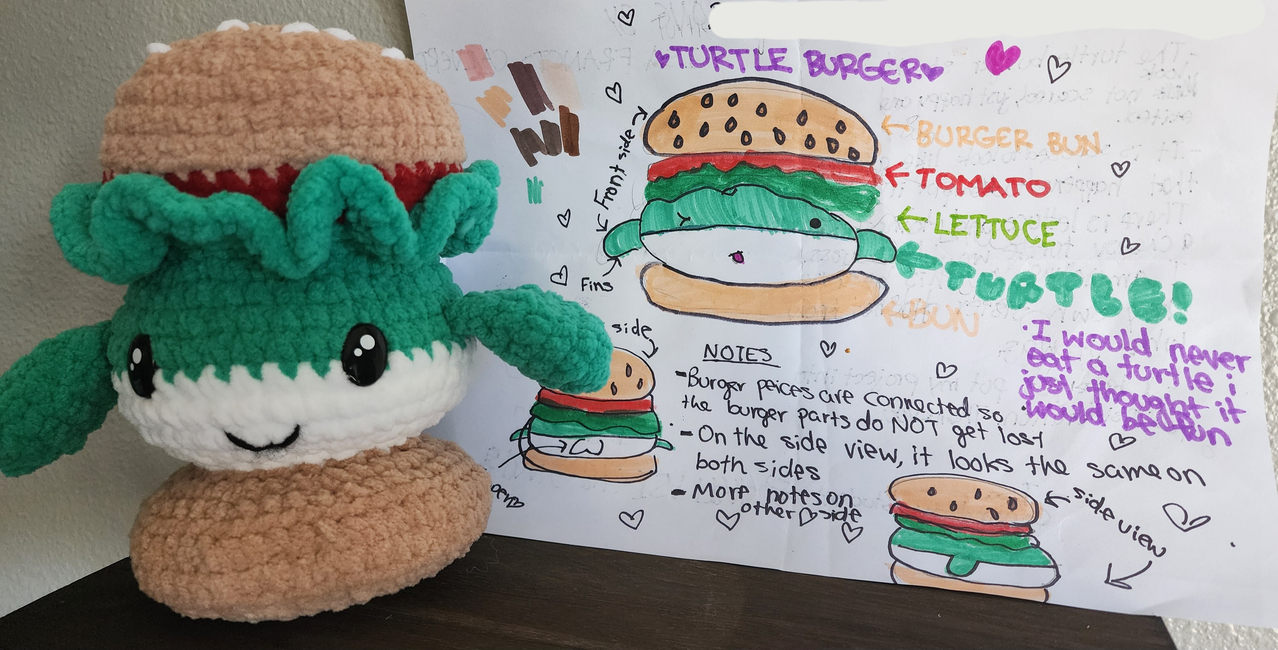 TURTLE BURGER
Front side
BURGER BUN
TOMATO
LETTUCE
TURTLE!
Fins
BUN
side
I would never
eat a turtle i
just thought it
would be fun
NOTES
-Burger peices are connected so
the burger parts do NOT get lost
-On the side view, it looks the same on
both sides
-More notes on
other side
side view